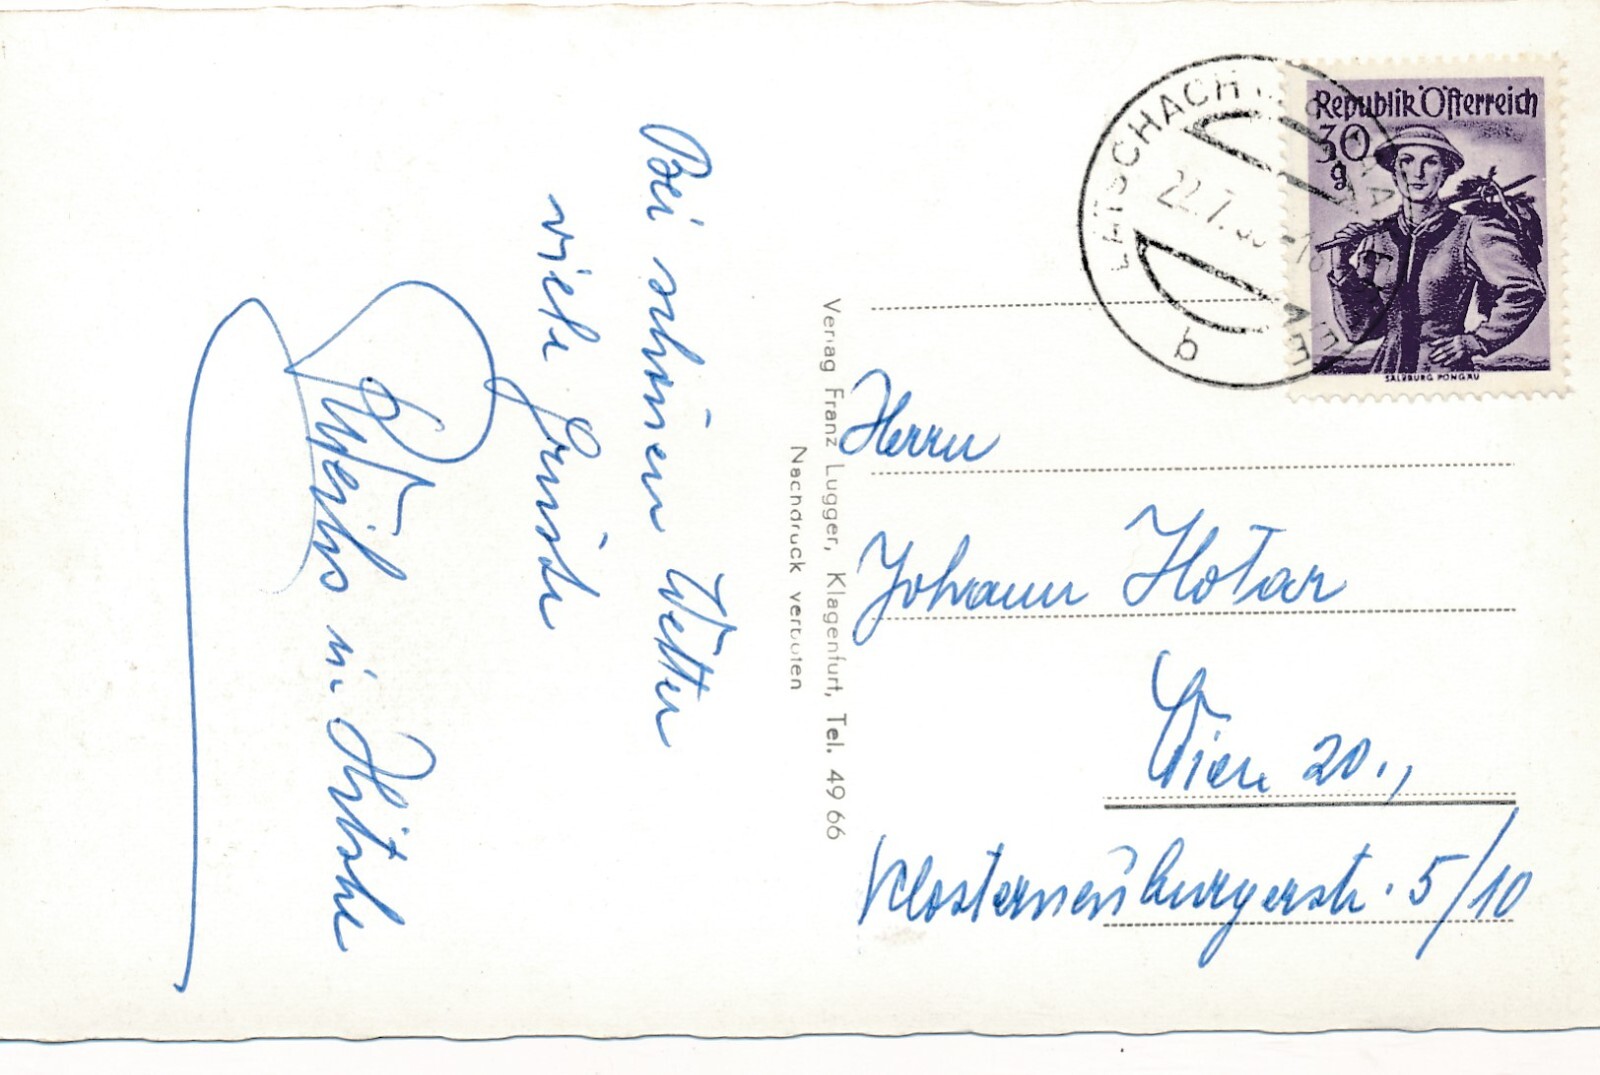 Bei schönem Wetter
viele Grüsse
Verlag Franz Lugger, Klagenfurt, Tel. 49 66
Nachdruck verboten
LATSCHACH
SEE
22.7.
b
Republik Österreich
30
g
SALZBURG PONGAU
Herrn
Johann Hotar
Wien 20.,
Klosterneuburgerstr. 5/10